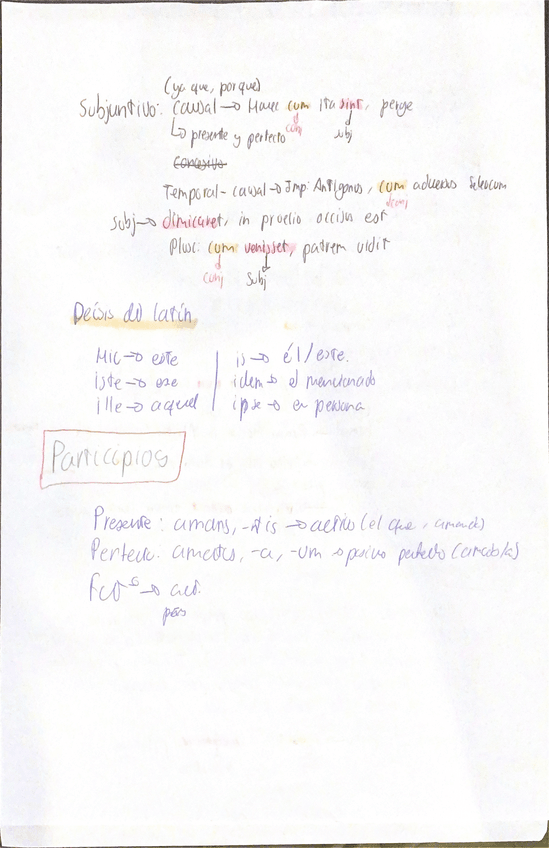 (ya que, porque)
Subjuntivo: Causal → Haec cum ita sint, perge
↳ presente y perfecto conj subj
Concesivo
Temporal-causal → Imp: Antigonus, cum adversus Seleucum
conj
Subj → dimicaret, in proelio occisus est
Plusc: cum venisset, patrem vidit
conj Subj
Deixis del latín
Hic → este | is → él/este.
iste → ese | idem → el mencionado
ille → aquel | ipse → en persona
Participios
Presente: amans, -ntis → activo (el que, amando)
Perfecto: amatus, -a, -um → pasivo perfecto (amado/a)
→ act.
pas